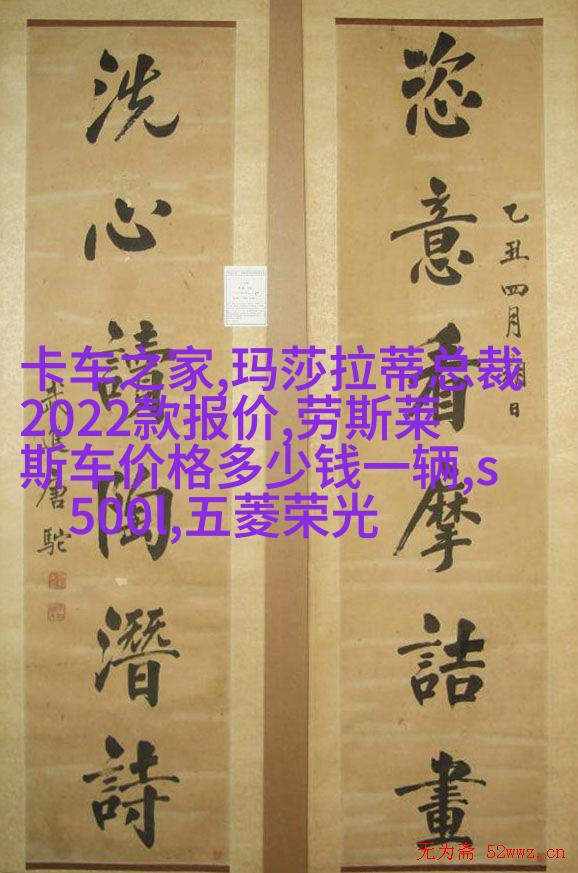 恣意看摩詰畫
乙丑四月日
洗心讀陶潛詩
武進唐駝
卡车之家,玛莎拉蒂总裁
2022款报价,劳斯莱
斯车价格多少钱一辆,s
500l,五菱荣光
无为斋 52wwz.cn